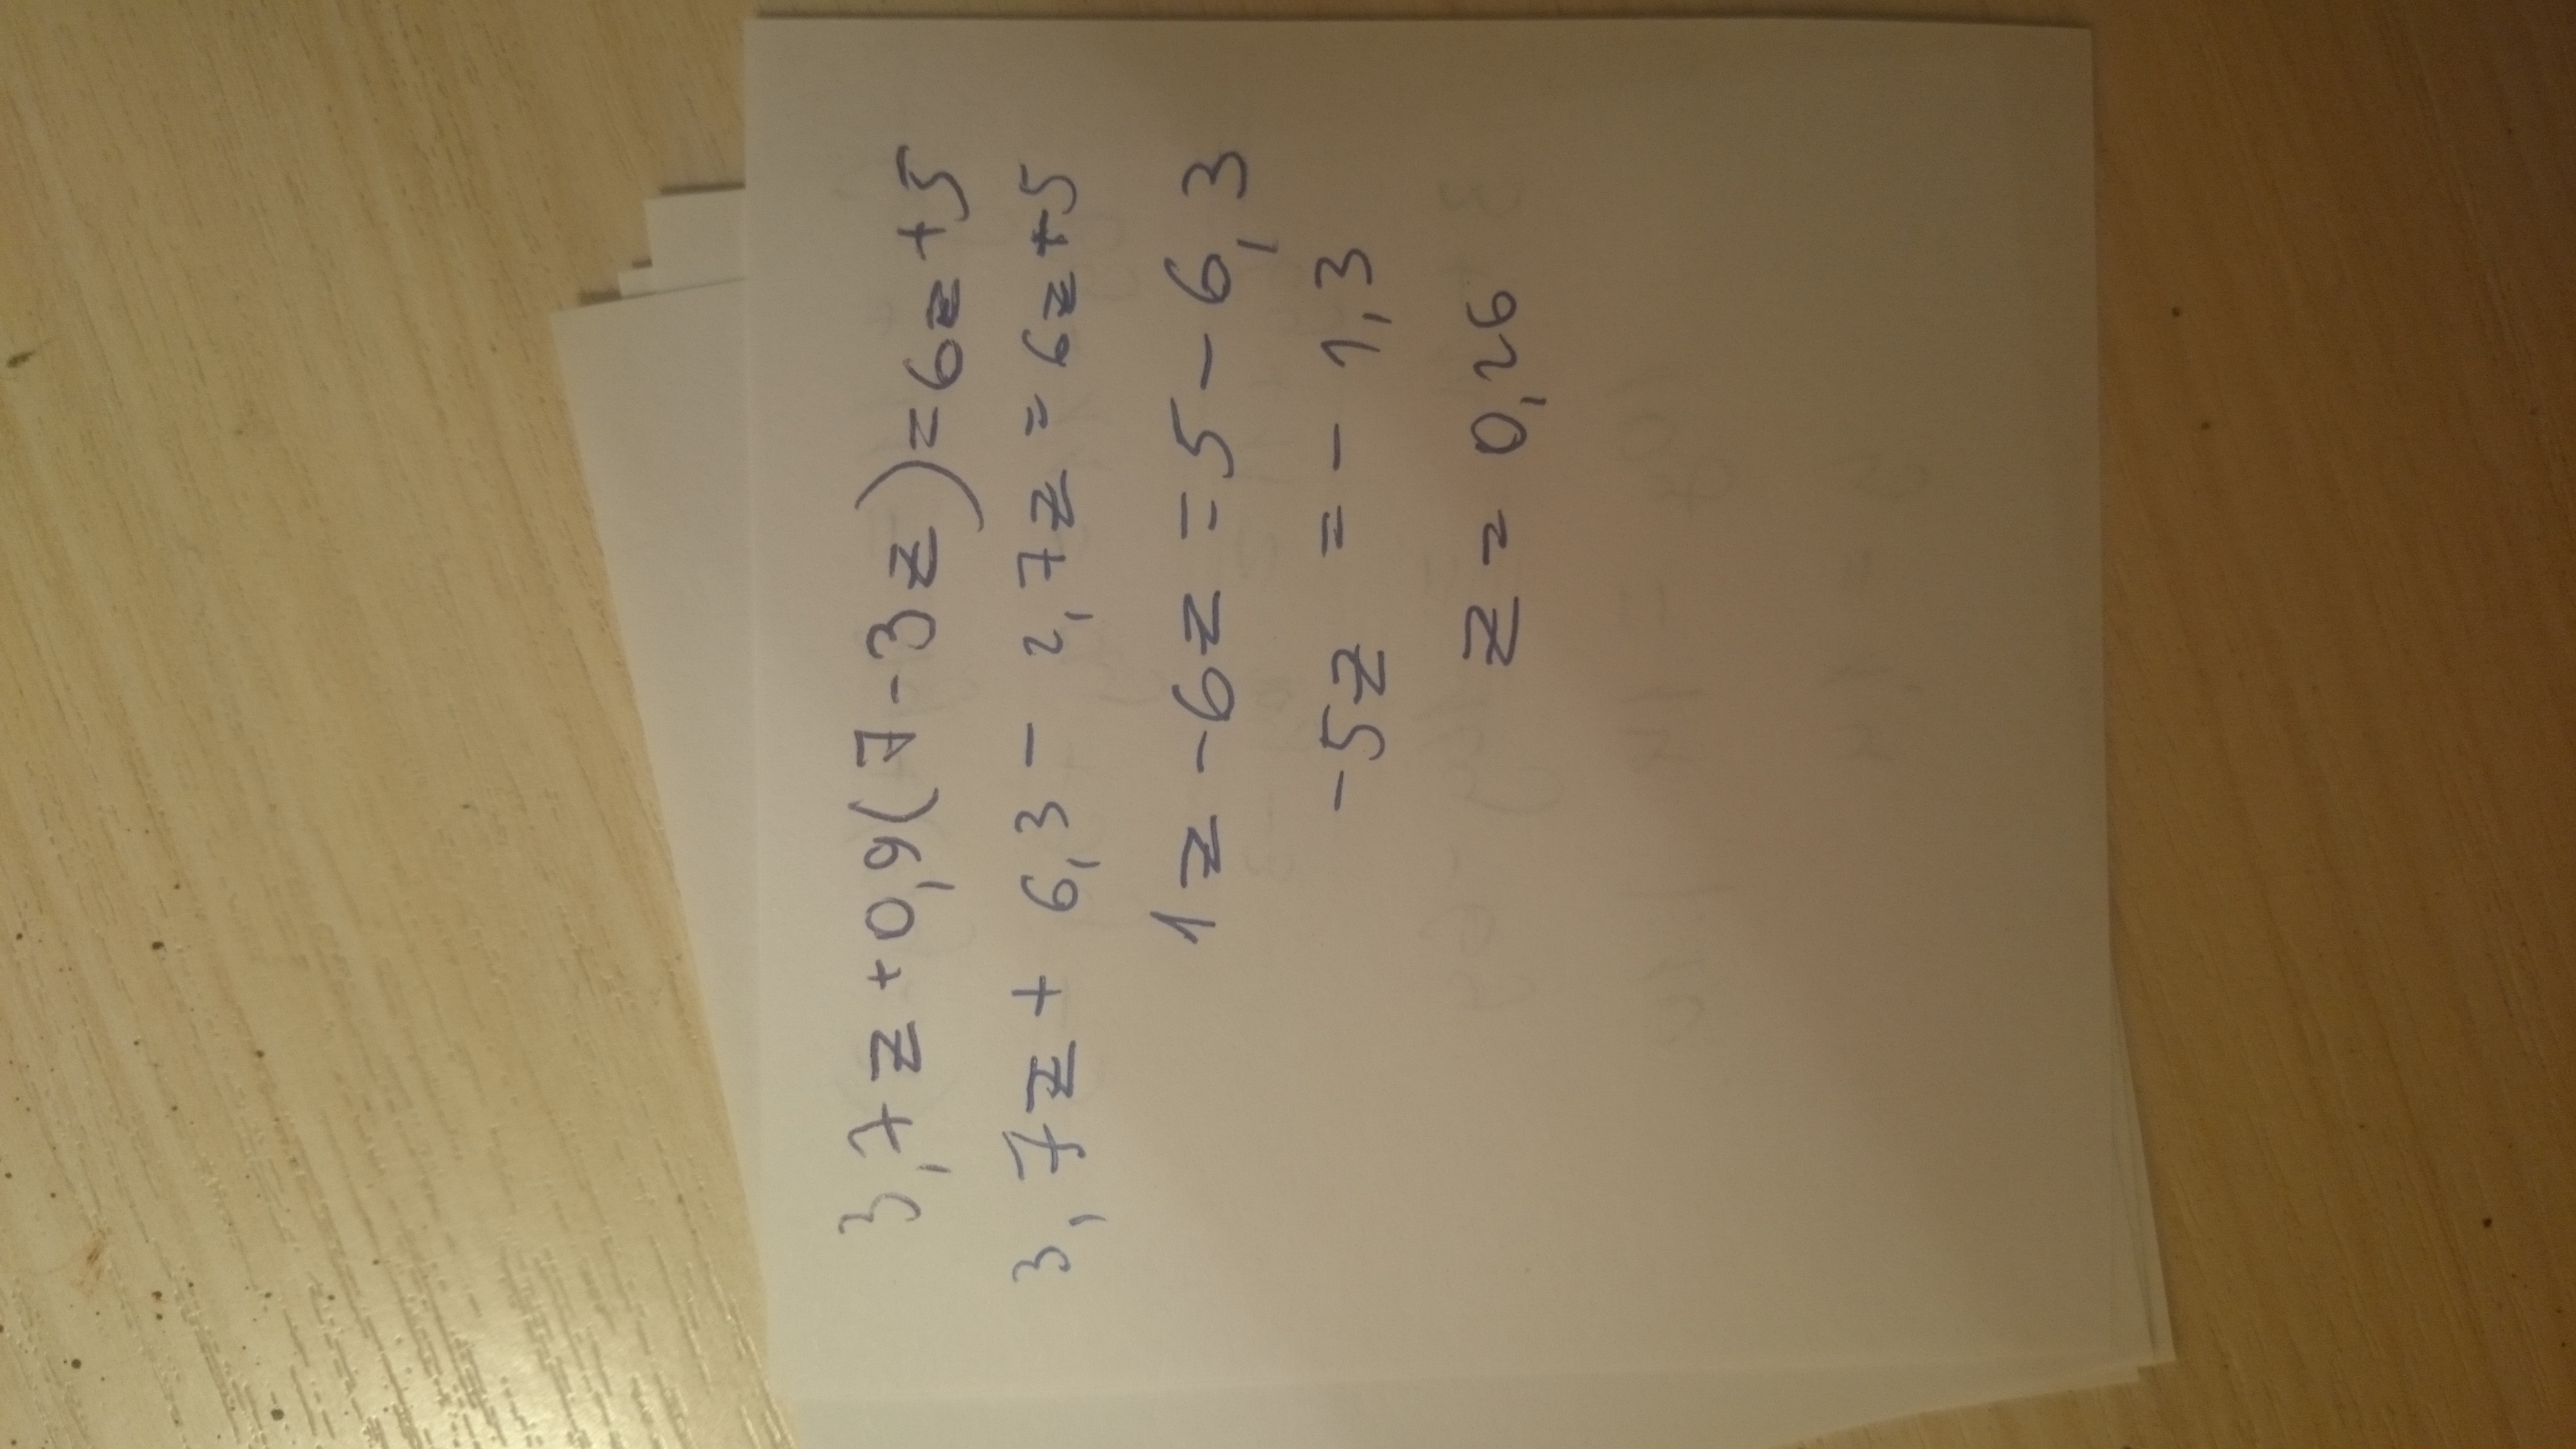 3,7z+0,9(7-3z)=6z+5
3,7z + 6,3 - 2,7z = 6z+5
1z -6z = 5 - 6,3
-5z = - 1,3
z = 0,26